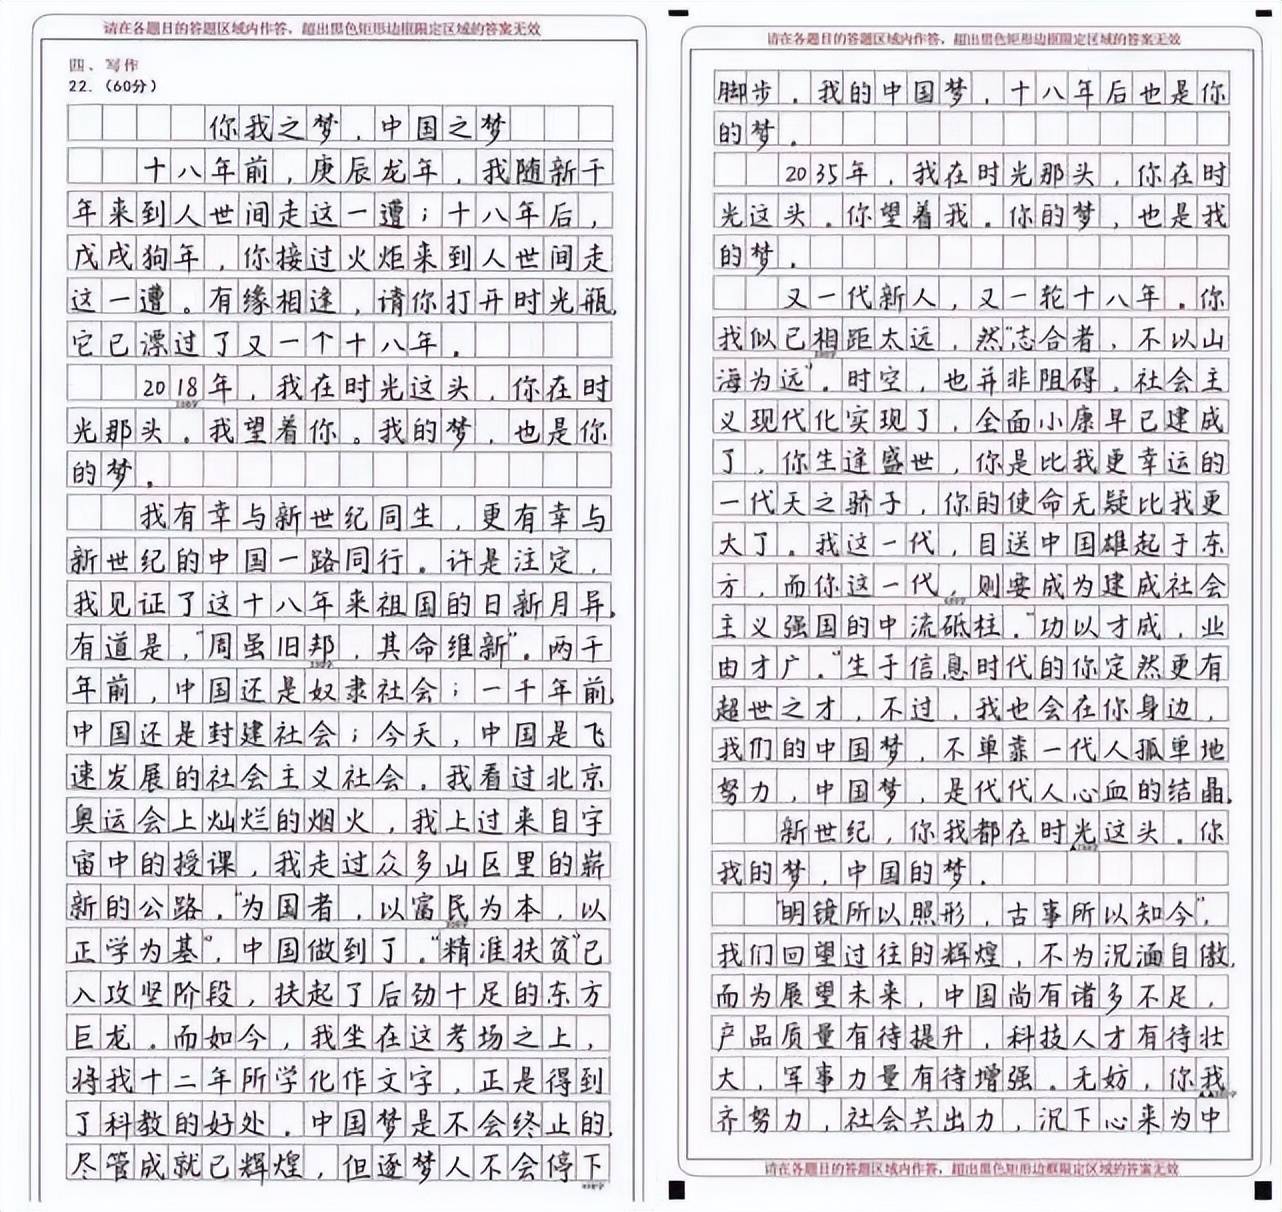 请在各题目的答题区域内作答，超出黑色矩形边框限定区域的答案无效
四、写作
22.（60分）
你我之梦，中国之梦
十八年前，庚辰龙年，我随新千
年来到人世间走这一遭；十八年后，
戊戌狗年，你接过火炬来到人世间走
这一遭。有缘相逢，请你打开时光瓶，
它已漂过了又一个十八年。
2018年，我在时光这头，你在时
光那头。我望着你。我的梦，也是你
的梦。
我有幸与新世纪同生，更有幸与
新世纪的中国一路同行。许是注定，
我见证了这十八年来祖国的日新月异，
有道是，“周虽旧邦，其命维新”。两千
年前，中国还是奴隶社会；一千年前，
中国还是封建社会；今天，中国是飞
速发展的社会主义社会。我看过北京
奥运会上灿烂的烟火，我上过来自宇
宙中的授课，我走过众多山区里的崭
新的公路。“为国者，以富民为本，以
正学为基”，中国做到了。“精准扶贫”已
入攻坚阶段，扶起了后劲十足的东方
巨龙。而如今，我坐在这考场之上，
将我十二年所学化作文字，正是得到
了科教的好处。中国梦是不会终止的，
尽管成就已辉煌，但逐梦人不会停下
请在各题目的答题区域内作答，超出黑色矩形边框限定区域的答案无效
脚步。我的中国梦，十八年后也是你
的梦。
2035年，我在时光那头，你在时
光这头。你望着我。你的梦，也是我
的梦。
又一代新人，又一轮十八年。你
我似已相距太远，然“志合者，不以山
海为远”。时空，也并非阻碍，社会主
义现代化实现了，全面小康早已建成
了，你生逢盛世，你是比我更幸运的
一代天之骄子，你的使命无疑比我更
大了。我这一代，目送中国雄起于东
方，而你这一代，则要成为建成社会
主义强国的中流砥柱。“功以才成，业
由才广。”生于信息时代的你定然更有
超世之才，不过，我也会在你身边，
我们的中国梦，不单靠一代人孤单地
努力，中国梦，是代代人心血的结晶。
新世纪，你我都在时光这头。你
我的梦，中国的梦。
“明镜所以照形，古事所以知今”，
我们回望过往的辉煌，不为沉湎自傲，
而为展望未来，中国尚有诸多不足，
产品质量有待提升，科技人才有待壮
大，军事力量有待增强。无妨，你我
齐努力，社会共出力，沉下心来为中
请在各题目的答题区域内作答，超出黑色矩形边框限定区域的答案无效